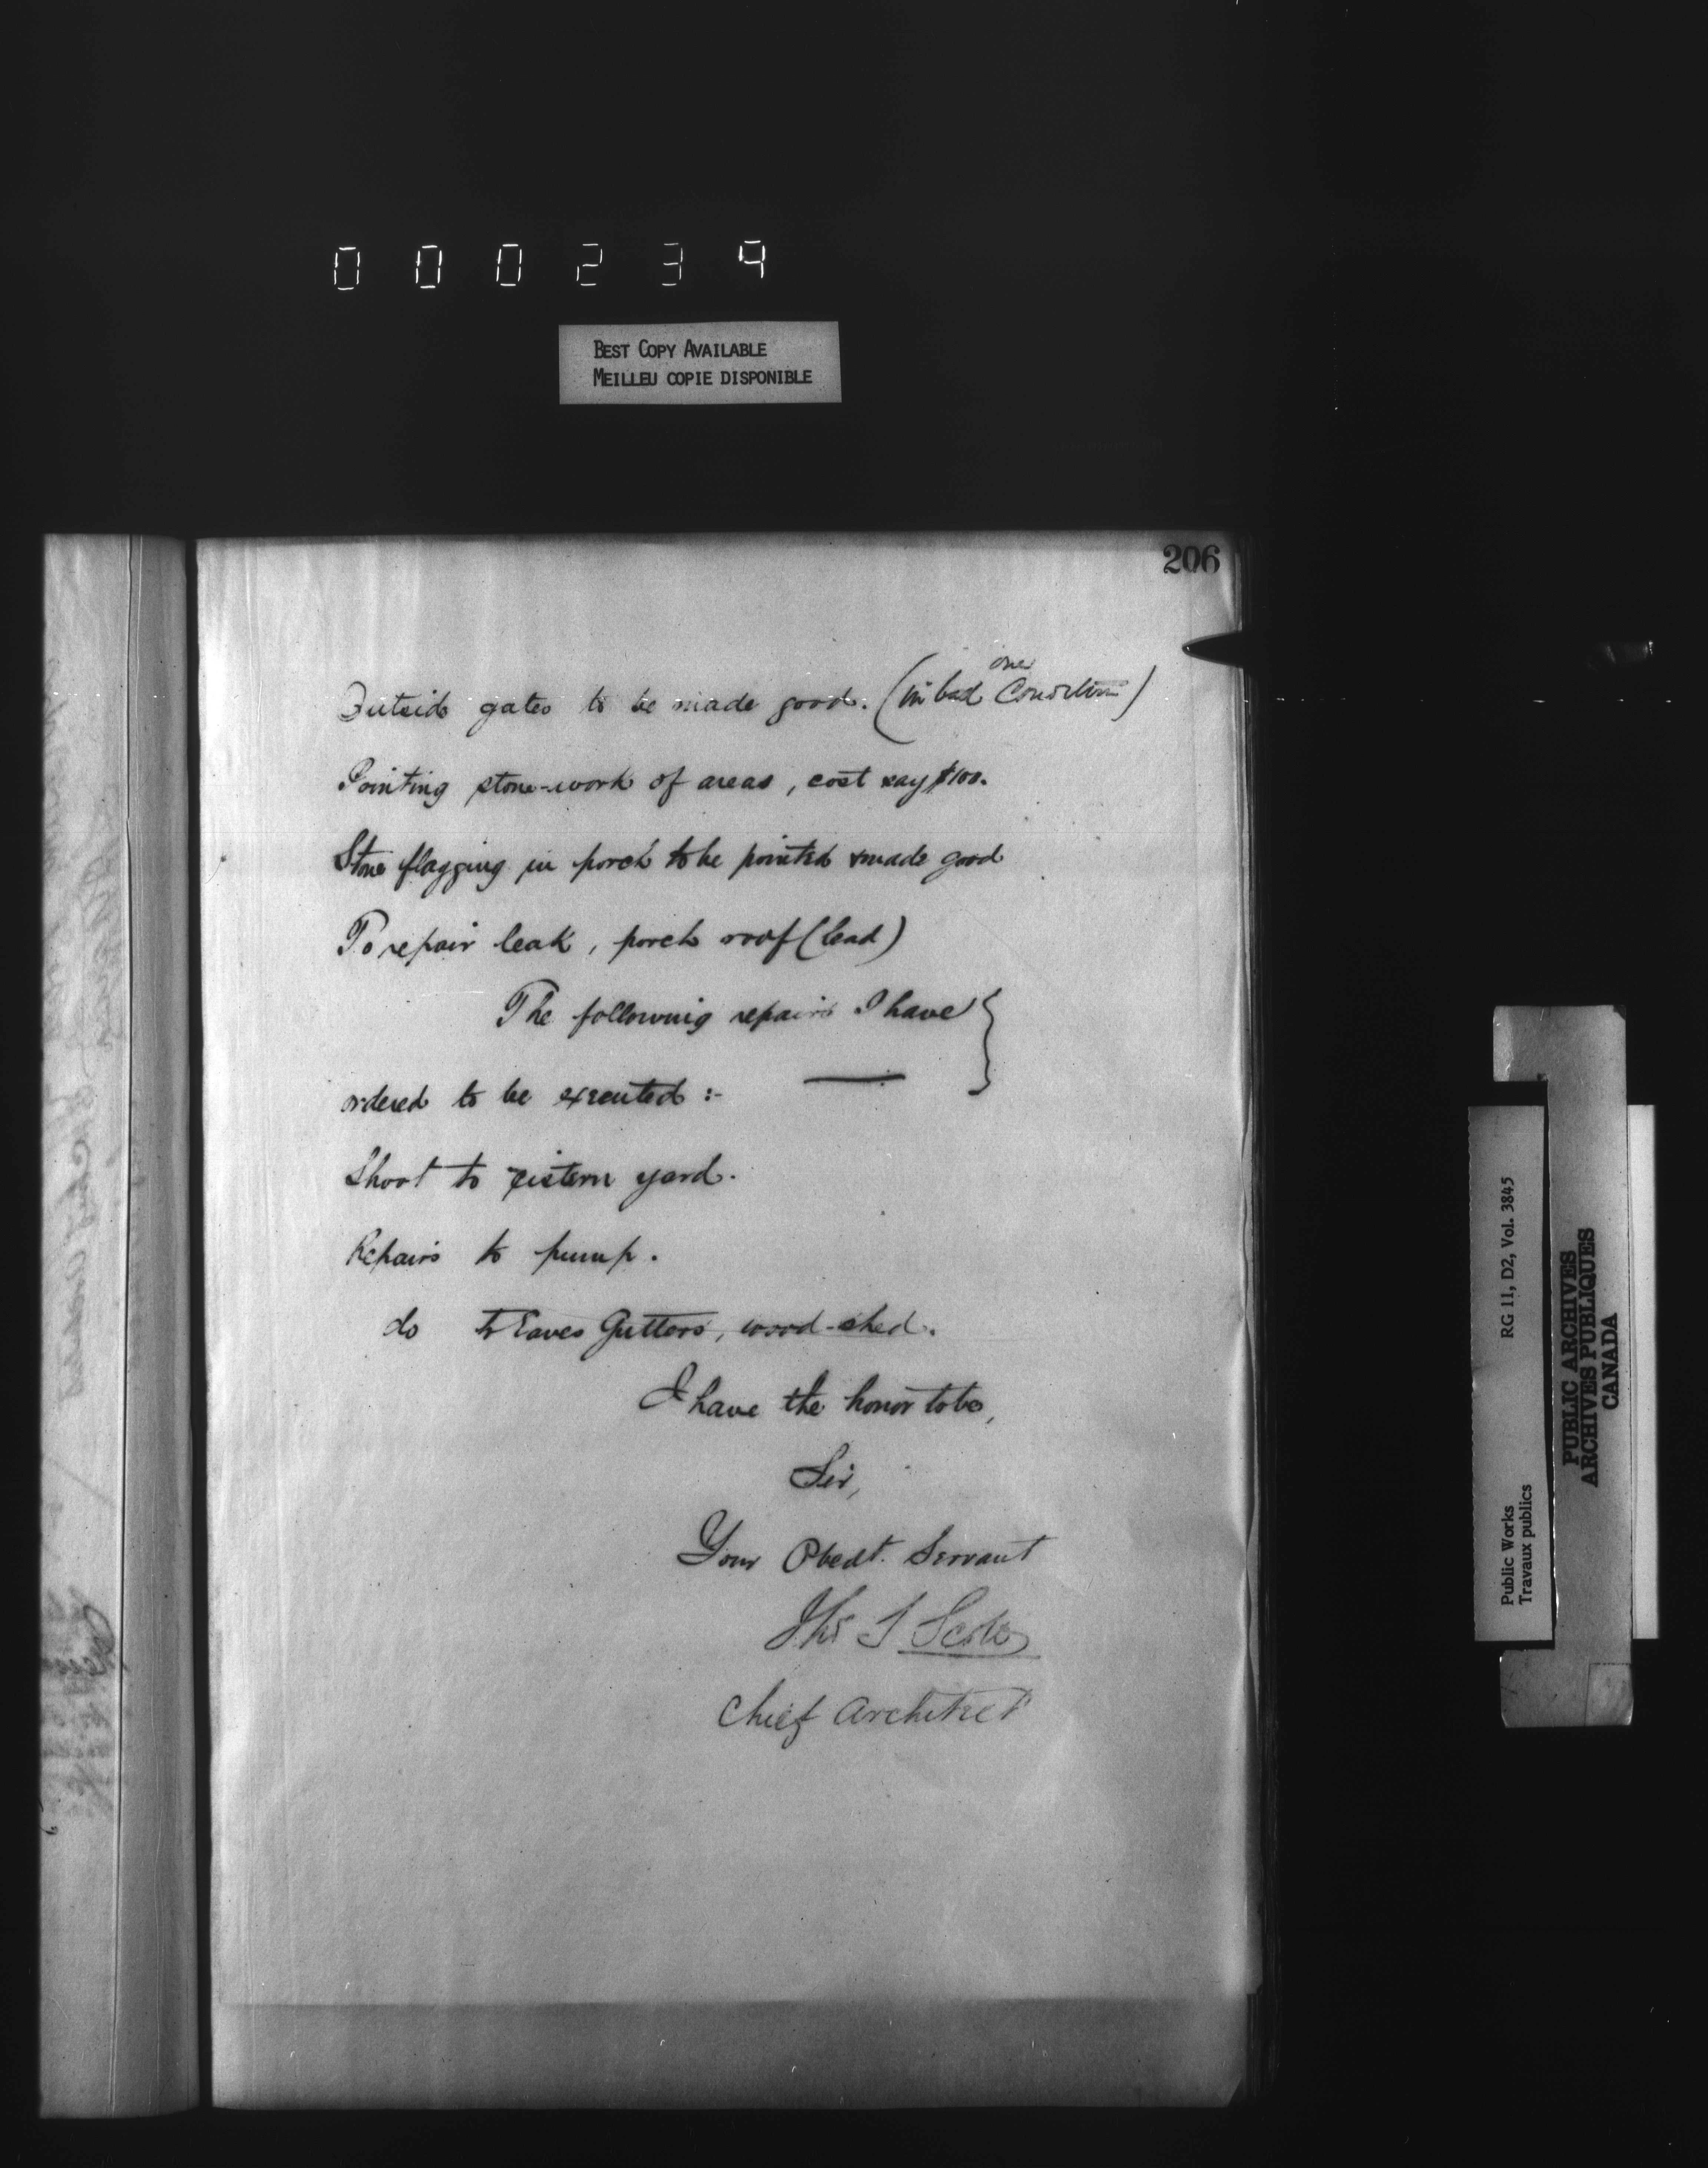 000234
BEST COPY AVAILABLE
MEILLEU COPIE DISPONIBLE
206
one
Outside gates to be made good. (in bad Condition)
Pointing stone-work of areas, cost say $100.
Stone flagging in porch to be pointed & made good
To repair leak, porch roof (lead)
The following repairs I have
ordered to be executed :-
Shoot to cistern yard.
Repairs to pump.
do to Eaves Gutters, wood-shed.
I have the honor to be,
Sir,
Your Obedt. Servant
Thos S Scott
Chief Architect
Public Works
Travaux publics
RG 11, D2, Vol. 3845
PUBLIC ARCHIVES
ARCHIVES PUBLIQUES
CANADA